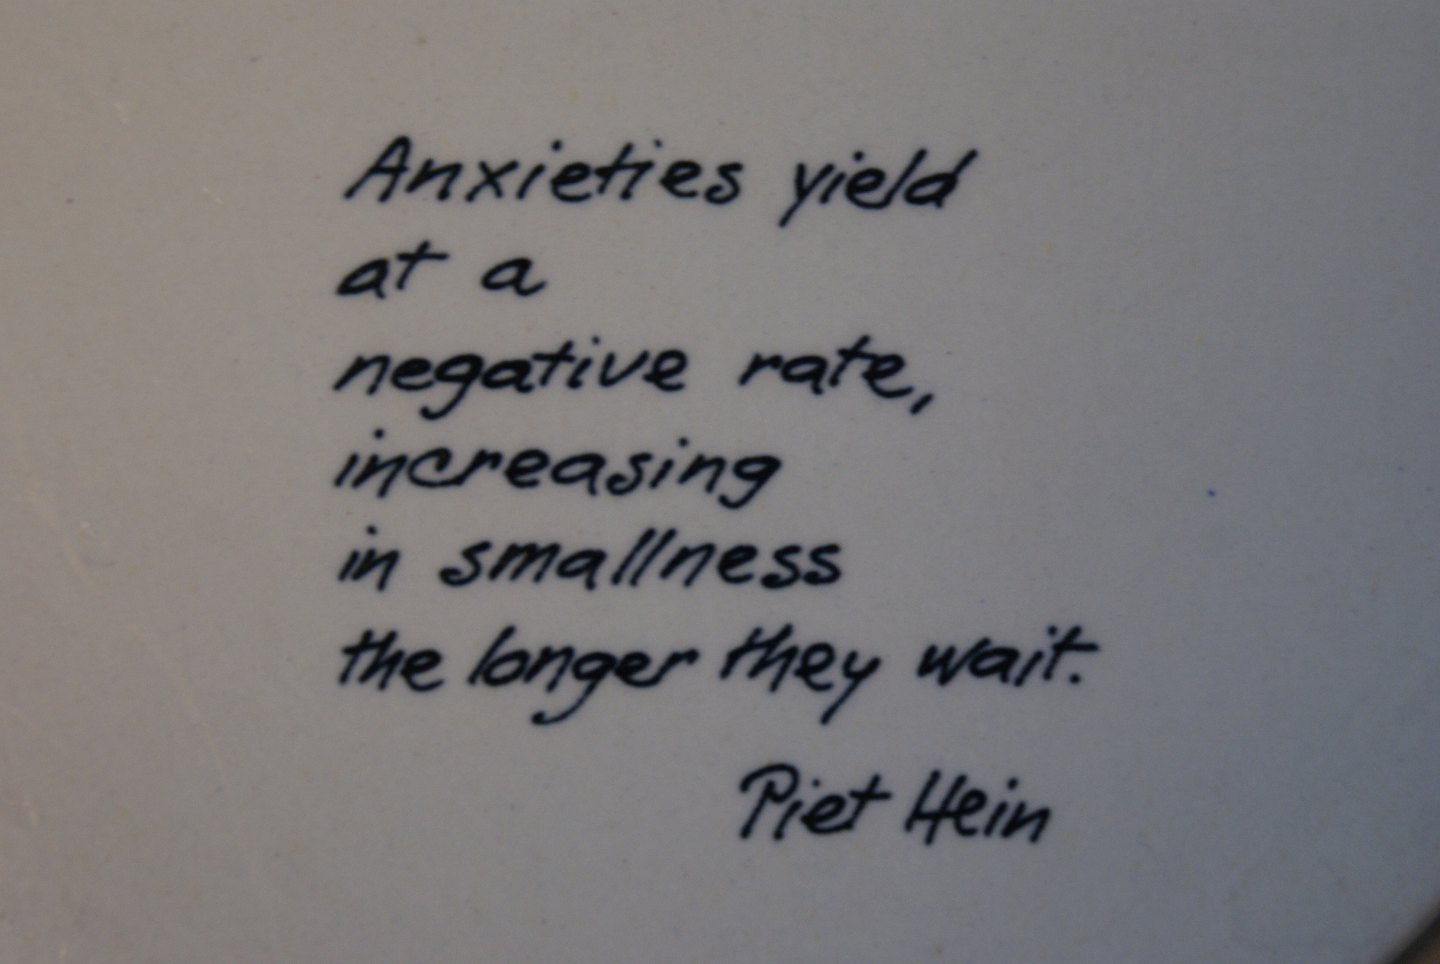 Anxieties yield
at a
negative rate,
increasing
in smallness
the longer they wait.
Piet Hein